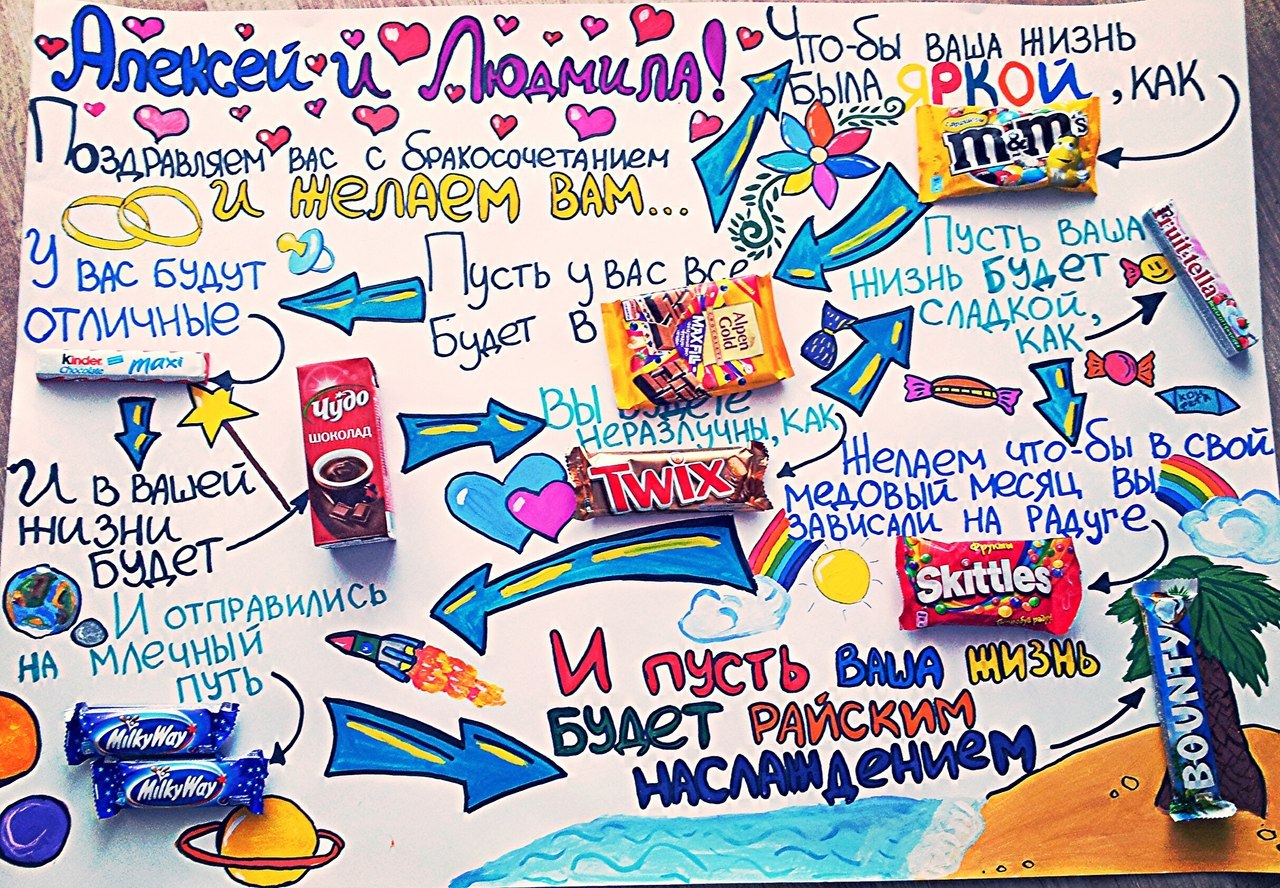 Алексей и Людмила!
Поздравляем вас с бракосочетанием
и желаем вам...
Что-бы ваша жизнь
была яркой, как
m&m's
Пусть у вас все
будет в
Alpen
Gold
MAX FUN
У вас будут
отличные
kinder
Chocolate
maxi
И в вашей
жизни
будет
Чудо
ШОКОЛАД
Вы будете
неразлучны, как
TWIX
Пусть ваша
жизнь будет
сладкой,
как
Fruittella
Желаем что-бы в свой
медовый месяц вы
зависали на радуге
Фрукты
Skittles
И отправились
на млечный
путь
MilkyWay
MilkyWay
И пусть ваша жизнь
будет райским
наслаждением
BOUNTY